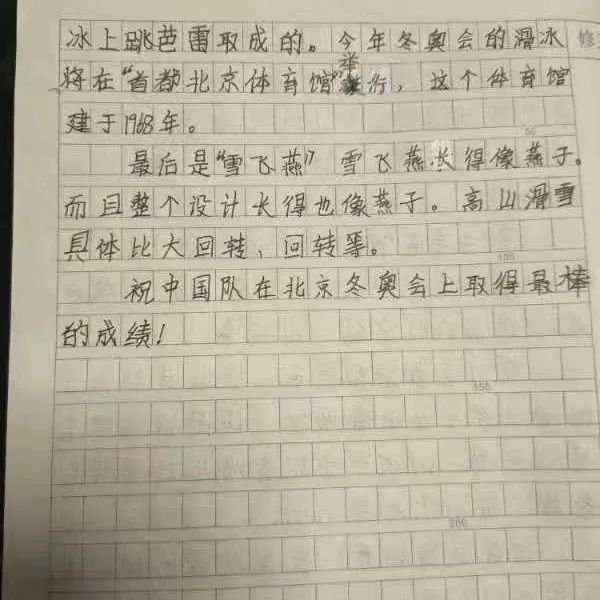 冰上跳芭雷取成的。今年冬奥会的滑冰
将在“首都北京体育馆”举行，这个体育馆
建于1968年。
最后是“雪飞燕”雪飞燕长得像燕子。
而且整个设计长得也像燕子。高山滑雪
具体比大回转、回转等。
祝中国队在北京冬奥会上取得最棒
的成绩！
50
100
150
200